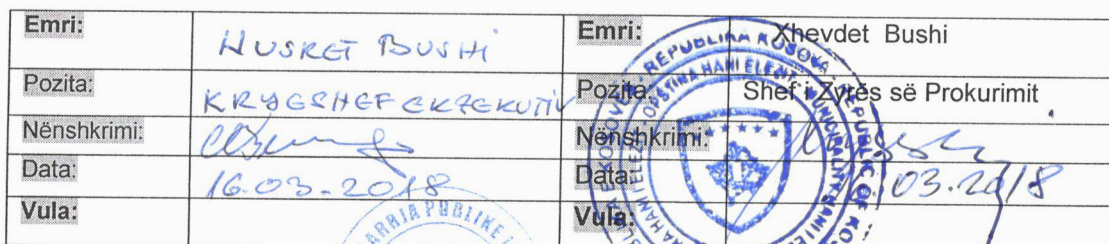 Emri: NUSRET BUSHI Emri: Xhevdet Bushi
Pozita: KRYESHEF EKZEKUTIV Pozita: Shef i Zyrës së Prokurimit
Nënshkrimi: Nënshkrimi:
Data: 16-03-2018 Data: 03.2018
Vula: Vula:
REPUBLIKA KOSOVA REPUBLIC OF
OPŠTINA HANI ELEZIT MUNICIPALITY HANI